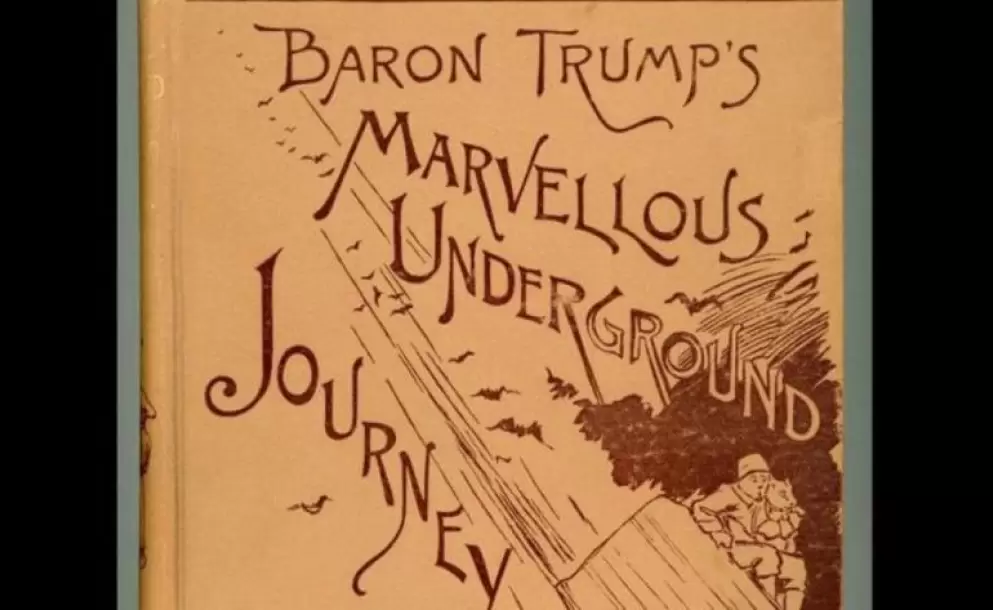 BARON TRUMP'S
MARVELLOUS
UNDERGROUND
JOURNEY